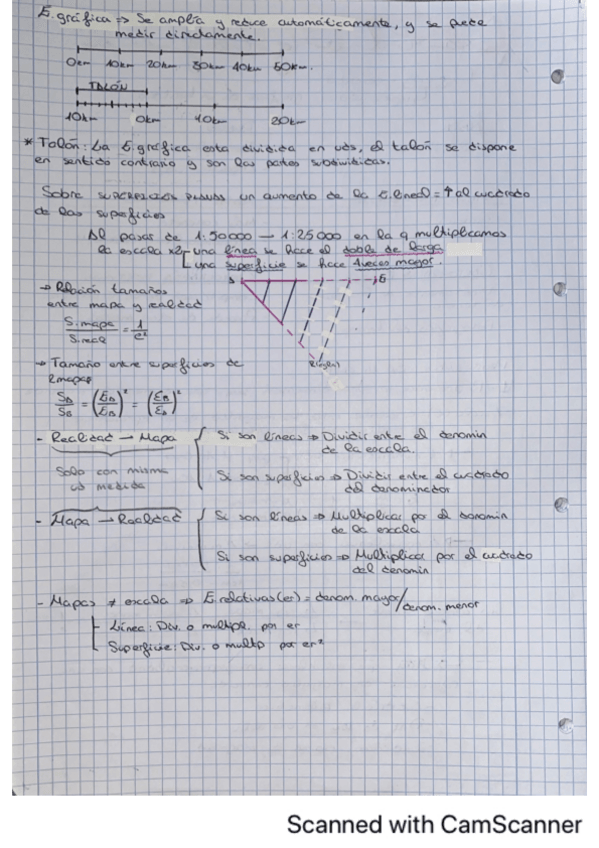 E. gráfica => Se amplía y reduce automáticamente, y se puede
medir directamente.
0km 10km 20km 30km 40km 50km.
TALÓN
10km 0km 10km 20km
* Talón: La E. gráfica esta dividida en uds, el talón se dispone
en sentido contrario y son las partes subdivididas.
Sobre SUPERFICIES PLANAS un aumento de la E. lineal = ↑ al cuadrado
de las superficies
Al pasar de 1:50000 — 1:25000 en la q multiplicamos
la escala x2 [ una línea se hace el doble de larga
una superficie se hace 4 veces mayor.
→ Relación tamaños
entre mapa y realidad
S. mapa / S. real = 1 / e²
→ Tamaño entre superficies de
2 mapas
- Realidad → Mapa { Si son líneas => Dividir entre el denomin
de la escala.
Solo con misma
ud medida
Si son superficies => Dividir entre el cuadrado
del denominador
- Mapa → Realidad { Si son líneas => Multiplicar por el denomin
de la escala
Si son superficies => Multiplicar por el cuadrado
del denomin
- Mapas ≠ escala => E. relativas (er) = denom. mayor/denom. menor
Línea: Div. o multipl. por er
Superficie: Div. o multp por er²
Scanned with CamScanner